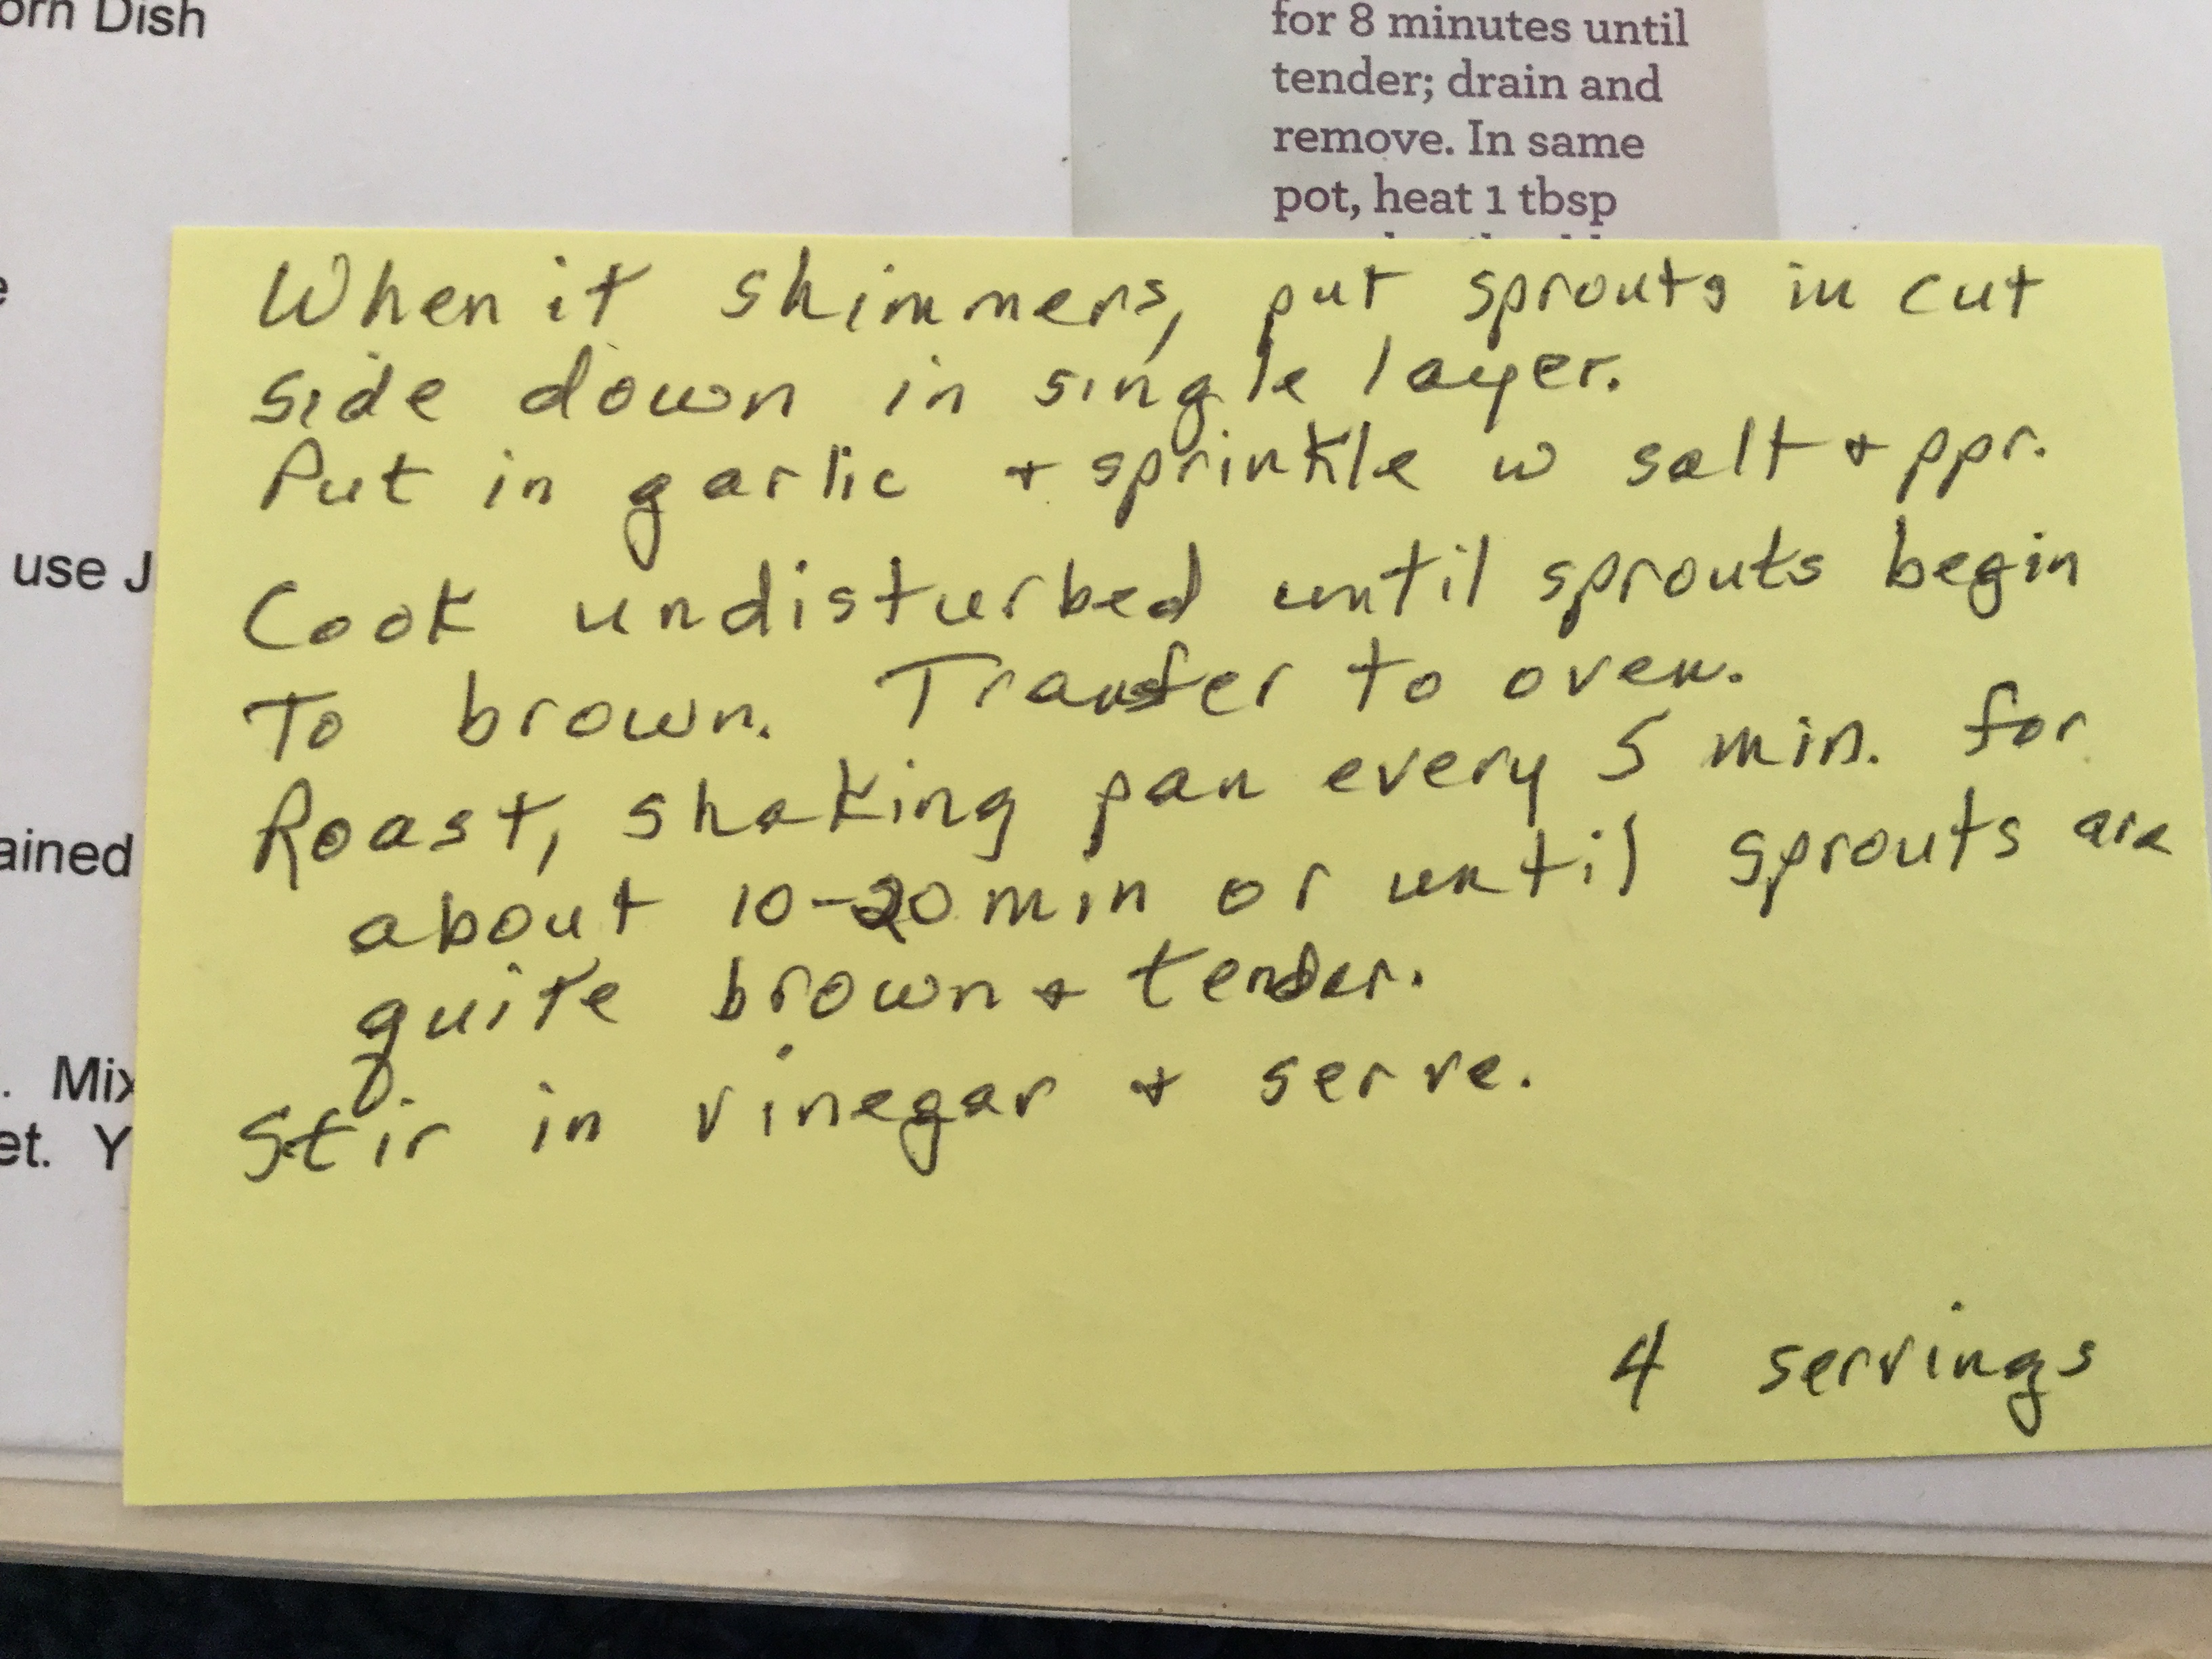 orn Dish
for 8 minutes until
tender; drain and
remove. In same
pot, heat 1 tbsp
use J
ained
. Mix
et. Y
When it shimmers, put sprouts in cut
side down in single layer.
Put in garlic + sprinkle w salt + ppr.
Cook undisturbed until sprouts begin
To brown. Transfer to oven.
Roast, shaking pan every 5 min. for
about 10-20 min or until sprouts are
quite brown + tender.
Stir in vinegar + serve.
4 servings